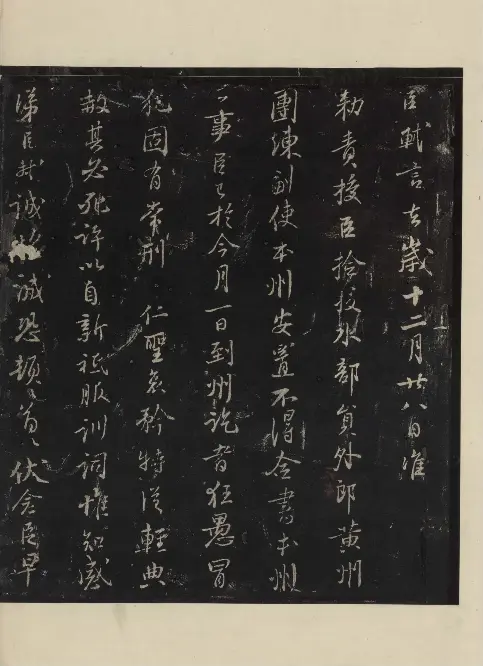 臣軾言去歲十二月廿八日准
勅責授臣撿挍水部員外郎黃州
團練副使本州安置不得佥書本州
公事臣已於今月一日到州訖者狂愚冒
犯固有常刑 仁聖哀矜特從輕典
赦其必死許以自新祗服訓詞惟知感
涕臣軾誠 誠恐頓〻首〻伏念臣早